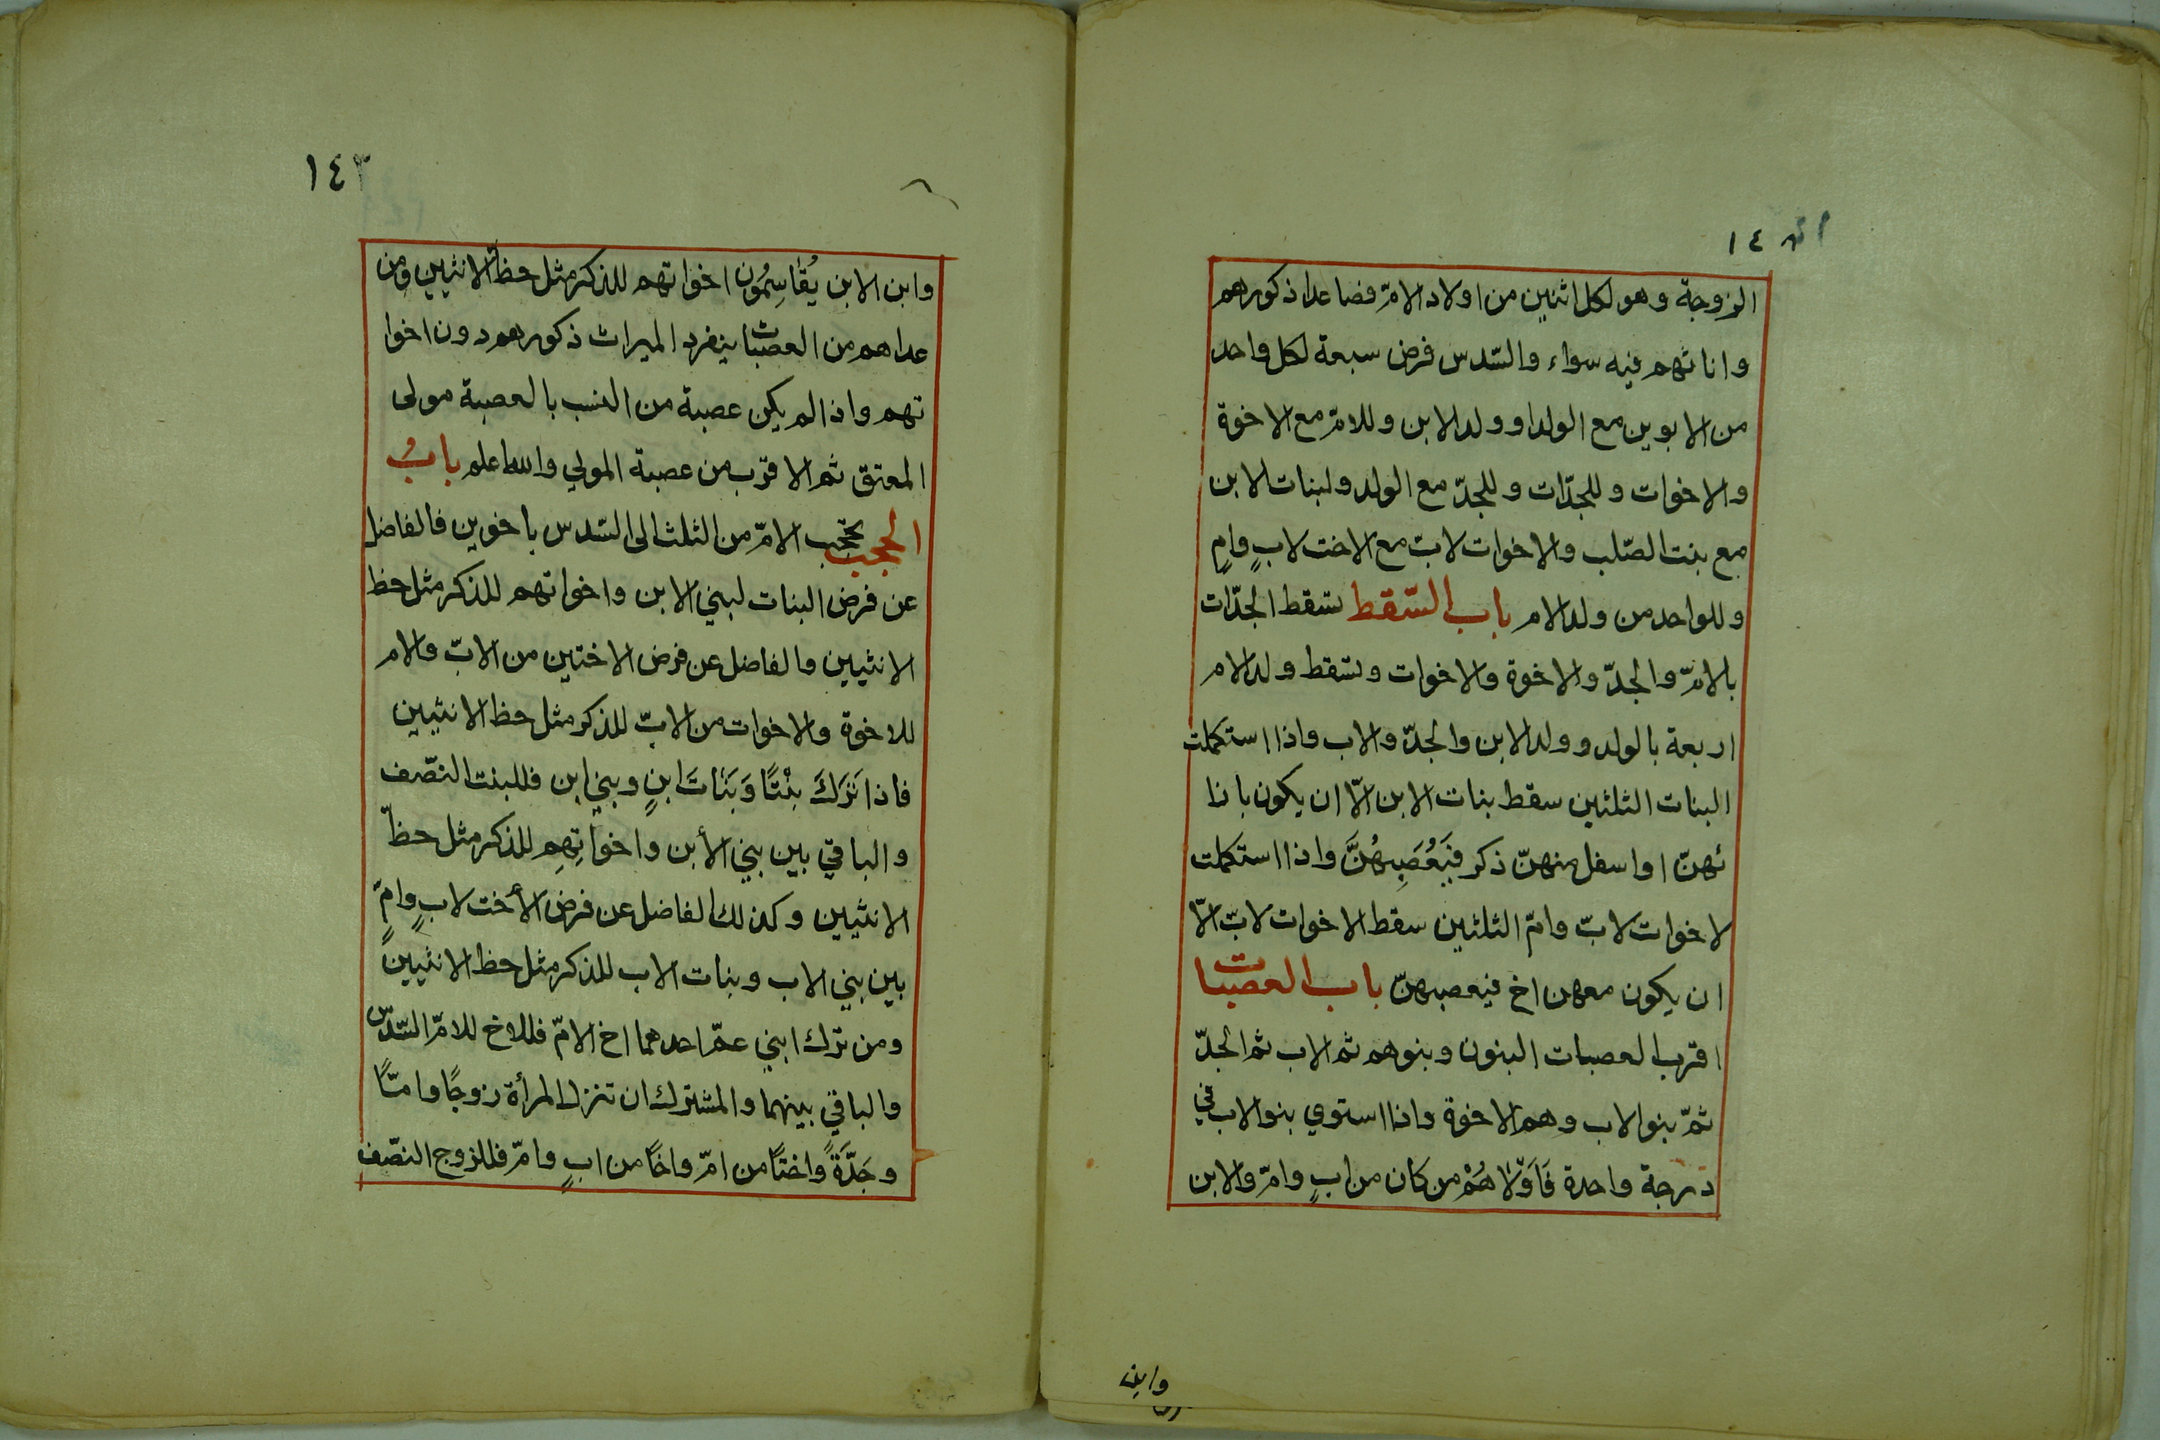 ١٤
الزوجة وهو لكل اثنين من اولاد الامّ فصاعدا ذكورهم
واناثهم فيه سواء والسّدس فرض سبعة لكل واحد
من الابوين مع الولد او ولد الابن وللامّ مع الاخوة
والاخوات وللجدّات وللجدّ مع الولد ولبنات الابن
مع بنت الصّلب والاخوات لابّ مع الاخت لابٍ وامٍ
وللواحد من ولد الام باب السّقط تسقط الجدّات
بالامّ والجدّ والاخوة والاخوات وتسقط ولد الام
اربعة بالولد وولد الابن والجدّ والاب واذا استكملت
البنات الثلثين سقط بنات الابن الّا ان يكون بازا
ئهنّ او اسفل منهنّ ذكر فَيَعُصَبِهُنَّ واذا استكملت
لاخوات لابّ وامّ الثلثين سقط الاخوات لابّ الّا
ان يكون معهن اخ فيعصبهنّ باب العصبات
اقرب العصبات البنون وبنوهم ثم الاب ثم الجدّ
ثمّ بنو الاب وهم الاخوة واذا استوي بنو الاب في
درجة واحدة فَاَوْلاهُمْ من كان من ابٍ وامّ والابن
وابن
١٤٣
وابن الابن يُقاسِمُون اخواتهم للذكر مثل حظّ الانثيين ومن
عداهم من العصبات ينفرد الميراث ذكورهم دون اخوا
تهم واذا لم يكن عصبة من النسب بالعصبة مولى
المعتق ثم الاقرب من عصبة المولي والله اعلم بابُ
الحجب يحجب الامّ من الثلث الى السّدس باخوين فالفاضل
عن فرض البنات لبني الابن واخواتهم للذكر مثل حظ
الانثيين والفاضل عن فرض الاختين من الابّ والام
للاخوة والاخوات من الابّ للذكر مثل حظ الانثيين
فاذا تَرَكَ بِنْتًا وَبَنَاتَ ابنٍ وبني ابن فللبنت النصّف
والباقي بين بني الأبن واخواتِهِم للذكر مثل حظّ
الانثيين وكذلك الفاضل عن فرض الأخت لابٍ وامٍّ
بين بني الاب وبنات الاب للذكر مثل حظ الانثيين
ومن ترك ابني عمّ احدهما اخ الامّ فللاخ للامّ السّدس
والباقي بينهما والمشترك ان تترك المرأة زوجًا وامّا
وجَدّةً واختًا من امّ واخًا من ابٍ وامّ فللزوج النصّف